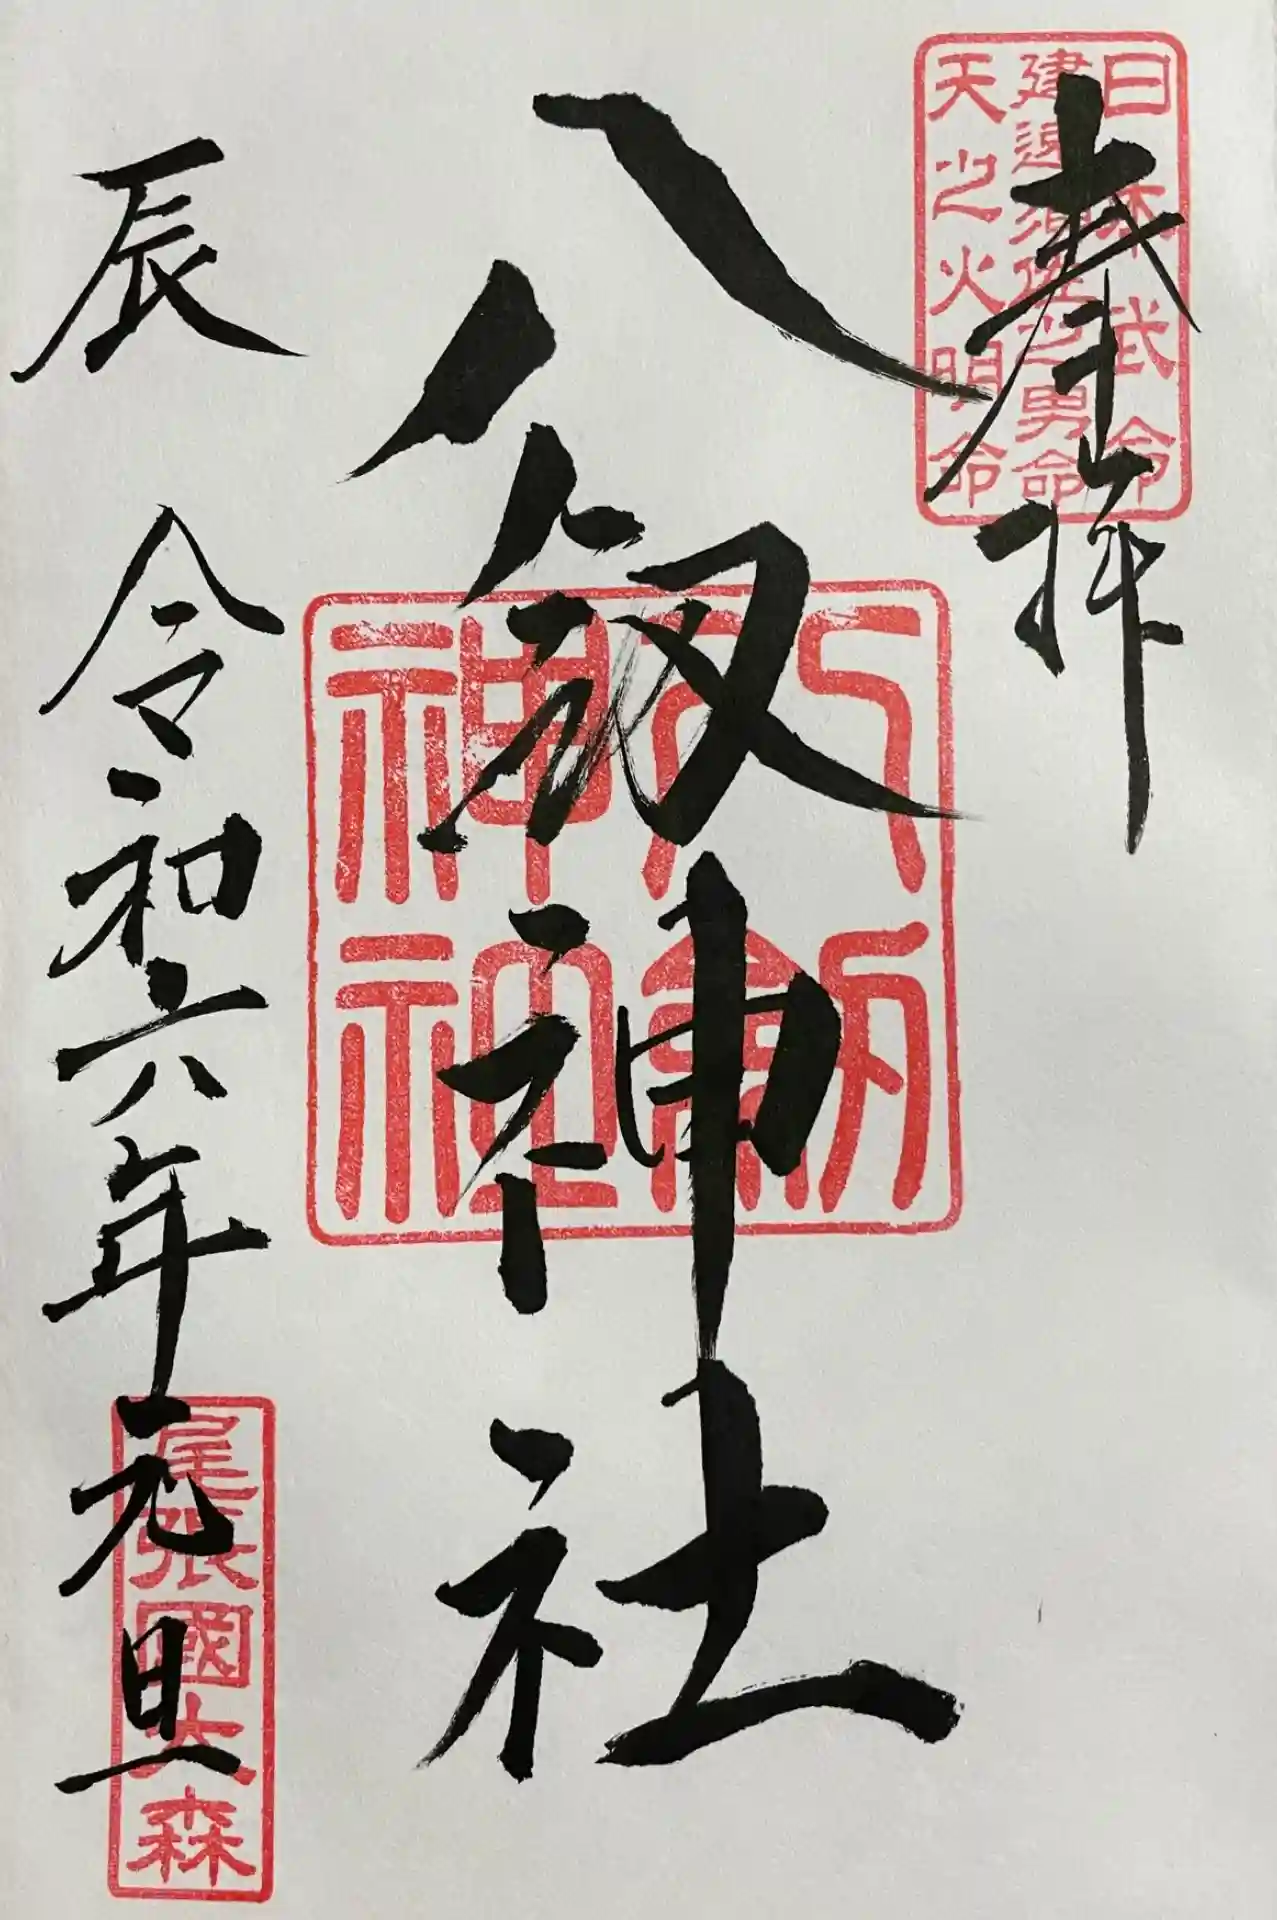 奉拝
日本武命
建速須佐之男命
天之火明命
八剱神社
八剱
神社
辰 令和六年元旦
尾張國大森